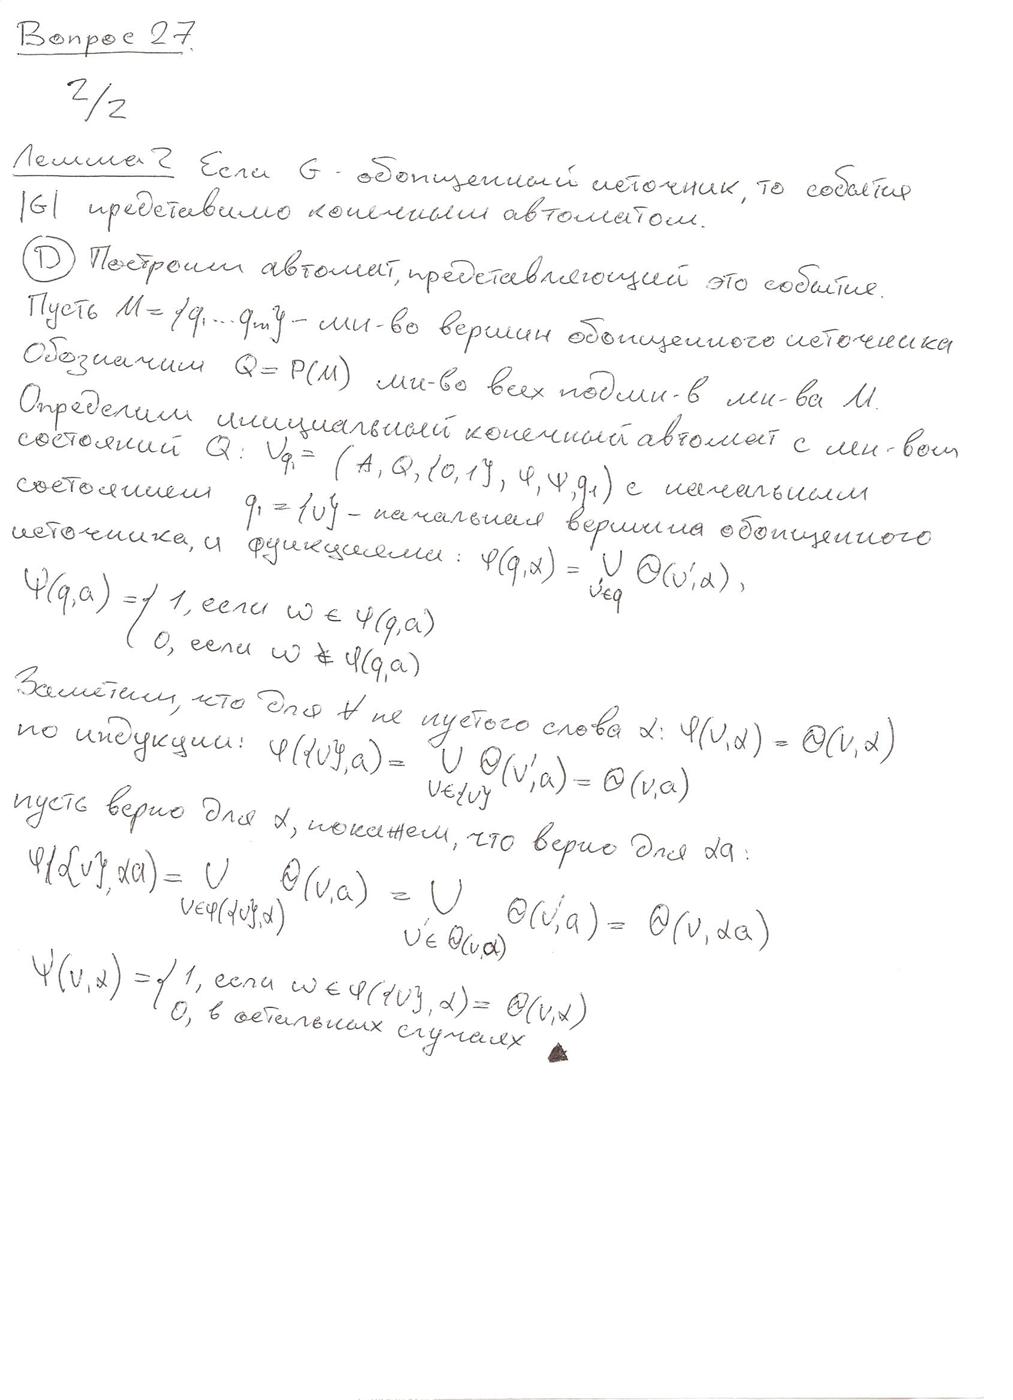 Вопрос 27.
2/2
Лемма 2 Если G - обобщенный источник, то событие
|G| представимо конечным автоматом.
Ⓓ Построим автомат, представляющий это событие.
Пусть M = {q₁...qₘ} – мн-во вершин обобщенного источника
Обозначим Q = P(M) мн-во всех подмн-в мн-ва M.
Определим инициальный конечный автомат с мн-вом
состояний Q: V_q₁ = (A, Q, {0,1}, φ, ψ, q₁) с начальным
состоянием q₁ = {v} – начальная вершина обобщенного
источника, и функциями: φ(q,α) = ∪_{v'∈q} Θ(v',α),
ψ(q,a) = { 1, если w ∈ φ(q,a)
0, если w ∉ φ(q,a)
Заметим, что для ∀ не пустого слова α: φ(v,α) = Θ(v,α)
по индукции: φ({v},a) = ∪_{v∈{v}} Θ(v',a) = Θ(v,a)
пусть верно для α, покажем, что верно для αa:
φ({v},αa) = ∪_{v∈φ({v},α)} Θ(v,a) = ∪_{v'∈Θ(v,α)} Θ(v',a) = Θ(v,αa)
ψ(v,α) = { 1, если w ∈ φ({v},α) = Θ(v,α)
0, в остальных случаях